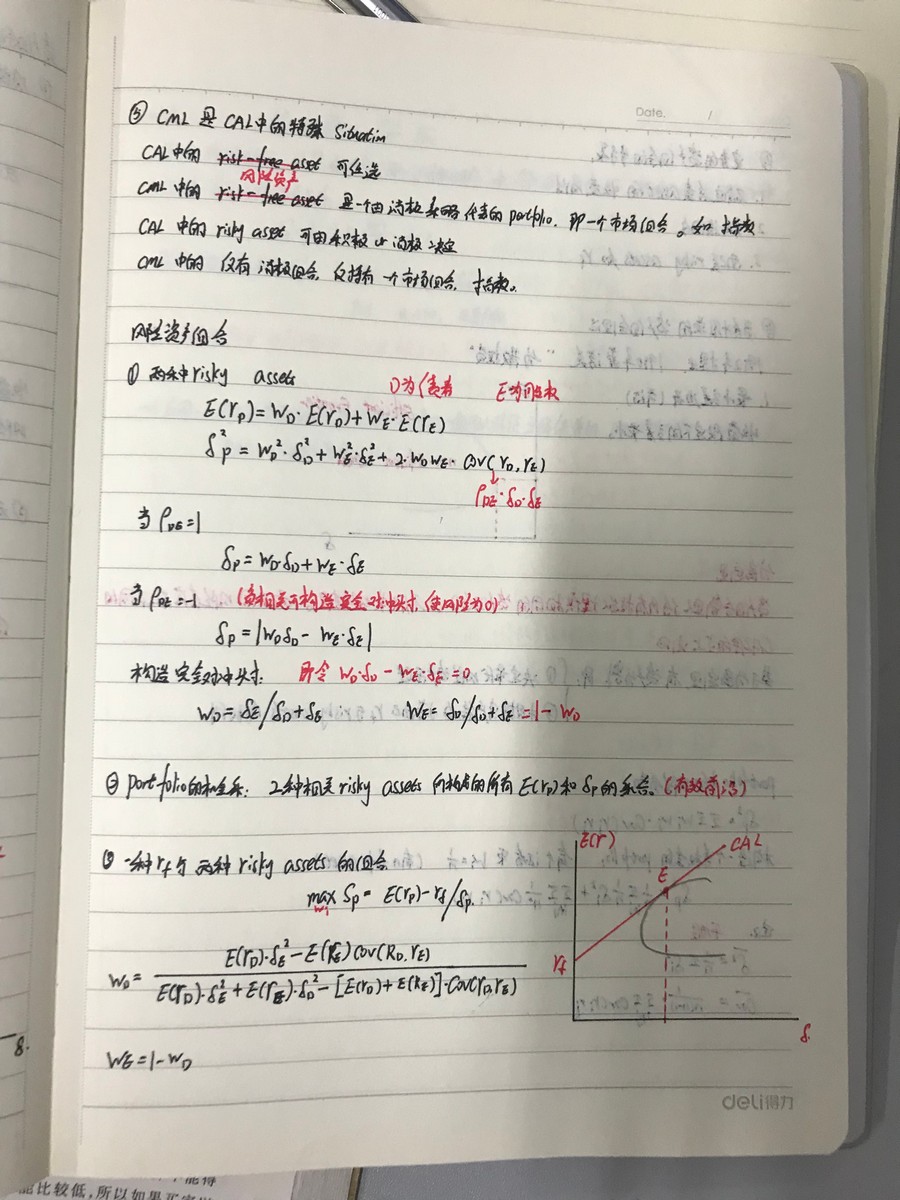 Date. /
⑤ CML 是 CAL中的特殊 Situation
CAL中的 risk-free asset 可任选
风险资产
CML 中的 risk-free asset 是一个由消极策略代表的 portfolio. 即一个市场组合。如 指数
CAL 中的 risky asset 可由积极 or 消极 决定
CML 中的 仅有 消极组合, 仅持有 一个市场组合, 指数。
风险资产组合
① 两种 risky assets D为债券 E为股权
E(r_P) = W_D · E(r_D) + W_E · E(r_E)
δ²_P = W_D² · δ_D² + W_E² · δ_E² + 2 · W_D W_E · Cov(r_D, r_E)
↓
ρ_DE · δ_D · δ_E
当 ρ_DE = 1
δ_P = W_D·δ_D + W_E·δ_E
当 ρ_DE = -1 (负相关可构造完全对冲头寸, 使风险为0)
δ_P = |W_D δ_D - W_E·δ_E|
构造完全对冲头寸: 即令 W_D·δ_D - W_E·δ_E = 0
W_D = δ_E/δ_D+δ_E W_E = δ_D/δ_D+δ_E = 1 - W_D
② portfolio的机会集: 2种相关 risky assets 所构成的所有 E(r_P) 和 δ_P 的集合。(有效前沿)
③ 一种 r_f 与 两种 risky assets 的组合
max S_P = E(r_P) - r_f/δ_P.
W_i
W_D = E(r_D)·δ_E² - E(R_E) Cov(R_D, r_E) / E(r_D)·δ_E² + E(r_E)·δ_D² - [E(r_D) + E(R_E)]·Cov(r_D, r_E)
W_E = 1 - W_D
E(r)
CAL
E
r_f
δ.
deli得力
8.
能得
能比较低,所以如果